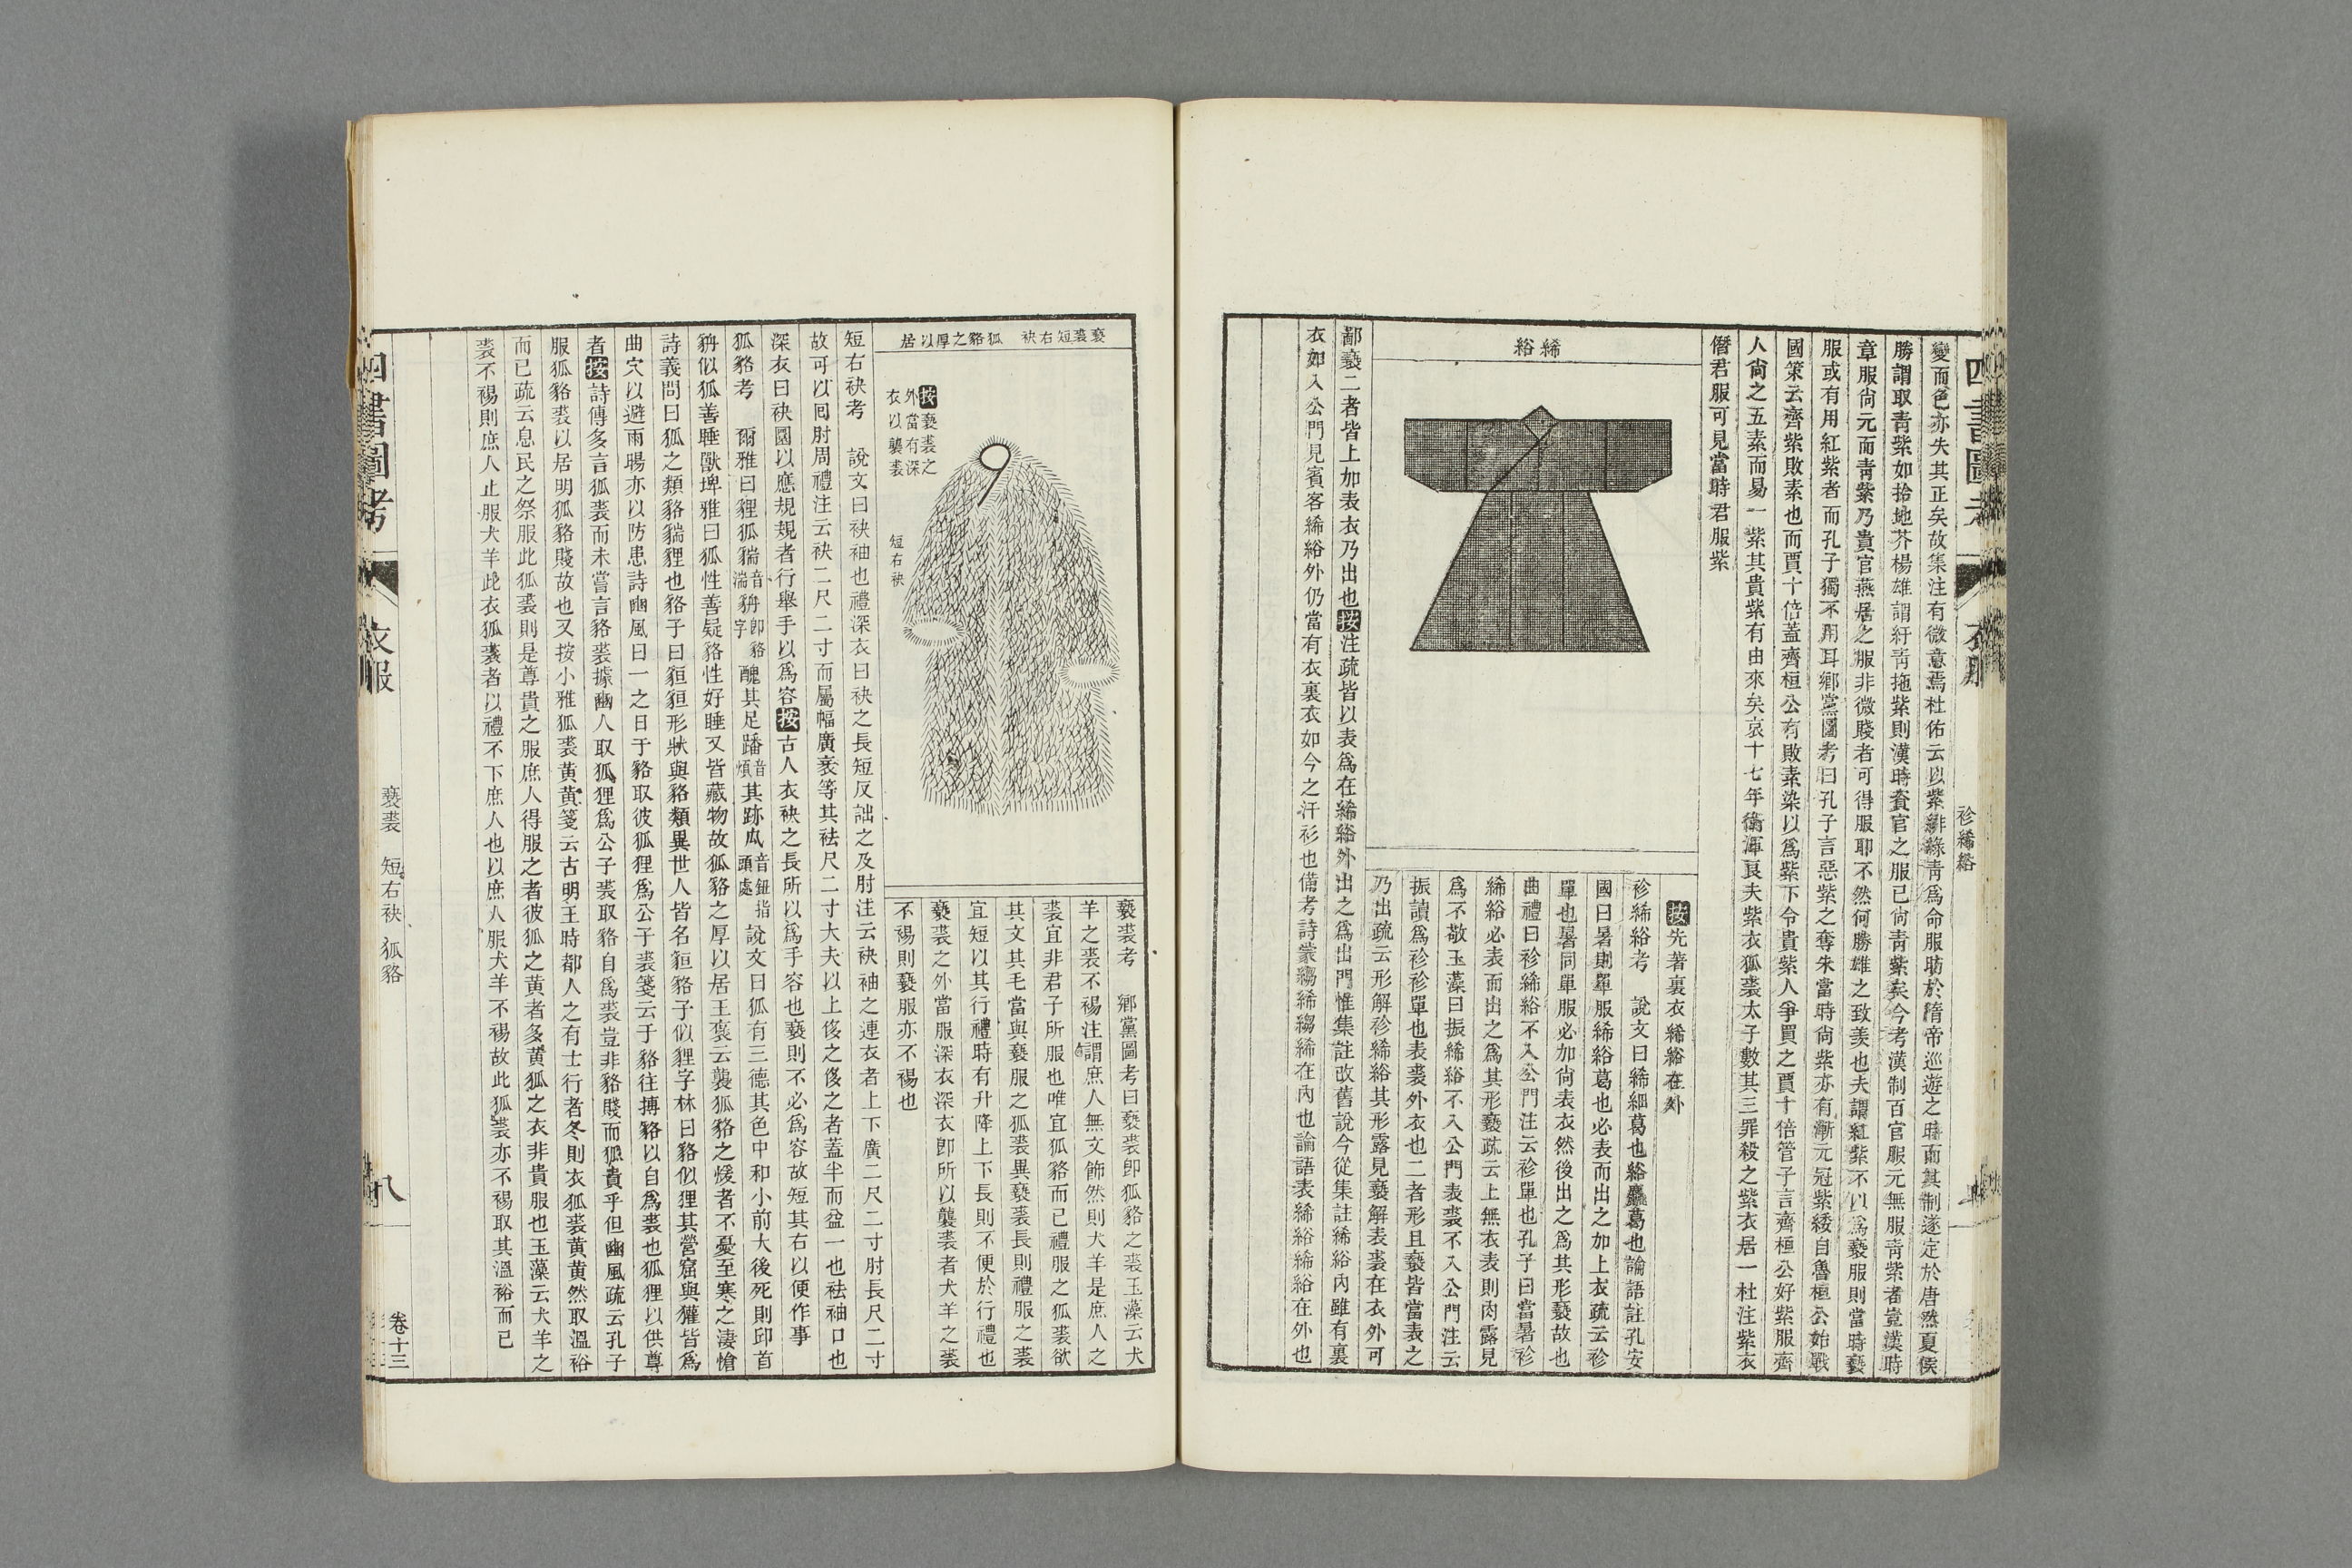 變而色亦失其正矣故集注有微意焉杜佑云以紫緋綠靑爲命服昉於隋帝巡遊之時而其制遂定於唐然夏侯
勝謂取靑紫如拾地芥楊雄謂紆靑拖紫則漢時貴官之服已尙靑紫矣今考漢制百官服元無服靑紫者豈漢時
章服尙元而靑紫乃貴官燕居之服非微賤者可得服耶不然何勝雄之致羨也夫謂紅紫不以爲褻服則當時褻
服或有用紅紫者而孔子獨不用耳鄕黨圖考曰孔子言惡紫之奪朱當時尙紫亦有漸元冠紫緌自魯桓公始戰
國策云齊紫敗素也而賈十倍蓋齊桓公有敗素染以爲紫下令貴紫人爭買之賈十倍管子言齊桓公好紫服齊
人尙之五素而易一紫其貴紫有由來矣哀十七年衞渾良夫紫衣狐裘太子數其三罪殺之紫衣居一杜注紫衣
僭君服可見當時君服紫
絺綌
按先著裏衣絺綌在外
袗絺綌考 說文曰絺細葛也綌麤葛也論語註孔安
國曰暑則單服絺綌葛也必表而出之加上衣疏云袗
單也暑同單服必加尙表衣然後出之爲其形褻故也
曲禮曰袗絺綌不入公門注云袗單也孔子曰當暑袗
絺綌必表而出之爲其形褻疏云上無衣表則肉露見
爲不敬玉藻曰振絺綌不入公門表裘不入公門注云
振讀爲袗袗單也表裘外衣也二者形且褻皆當表之
乃出疏云形解袗絺綌其形露見褻解表裘在衣外可
鄙褻二者皆上加表衣乃出也按注疏皆以表爲在絺綌外出之爲出門惟集註改舊說今從集註絺綌內雖有裏
衣如入公門見賓客絺綌外仍當有衣裏衣如今之汗衫也備考詩蒙縐絺縐絺在內也論語表絺綌絺綌在外也
四書圖考 衣服 袗絺綌
褻裘短右袂 狐貉之厚以居
按褻裘之
外當有深
衣以襲裘
短右袂
褻裘考 鄕黨圖考曰褻裘卽狐貉之裘玉藻云犬
羊之裘不裼注謂庶人無文飾然則犬羊是庶人之
裘宜非君子所服也唯宜狐貉而已禮服之狐裘欲
其文其毛當與褻服之狐裘異褻裘長則禮服之裘
宜短以其行禮時有升降上下長則不便於行禮也
褻裘之外當服深衣深衣卽所以襲裘者犬羊之裘
不裼則褻服亦不裼也
短右袂考 說文曰袂袖也禮深衣曰袂之長短反詘之及肘注云袂袖之連衣者上下廣二尺二寸肘長尺二寸
故可以囘肘周禮注云袂二尺二寸而屬幅廣袤等其袪尺二寸大夫以上侈之侈之者蓋半而益一也袪袖口也
深衣曰袂圜以應規規者行舉手以爲容按古人衣袂之長所以爲手容也褻則不必爲容故短其右以便作事
狐貉考 爾雅曰貍狐貒音湍貈卽貉字醜其足蹯音煩其跡瓜音鈕指頭處 說文曰狐有三德其色中和小前大後死則邱首
貈似狐善睡獸埤雅曰狐性善疑貉性好睡又皆藏物故狐貉之厚以居王褒云襲狐貉之煖者不憂至寒之淒愴
詩義問曰狐之類貉貒貍也貉子曰貆貆形狀與貉類異世人皆名貆貉子似貍字林曰貉似貍其營窟與獾皆爲
曲穴以避雨暘亦以防患詩豳風曰一之日于貉取彼狐貍爲公子裘箋云于貉往搏貉以自爲裘也狐貍以供尊
者按詩傳多言狐裘而未嘗言貉裘據豳人取狐貍爲公子裘取貉自爲裘豈非貉賤而狐貴乎但豳風疏云孔子
服狐貉裘以居明狐貉賤故也又按小雅狐裘黃黃箋云古明王時都人之有士行者冬則衣狐裘黃黃然取溫裕
而已疏云息民之祭服此狐裘則是尊貴之服庶人得服之者彼狐之黃者多黃狐之衣非貴服也玉藻云犬羊之
裘不裼則庶人止服犬羊此衣狐裘者以禮不下庶人也以庶人服犬羊不裼故此狐裘亦不裼取其溫裕而已
四書圖考 衣服 褻裘 短右袂 狐貉 八 卷十三